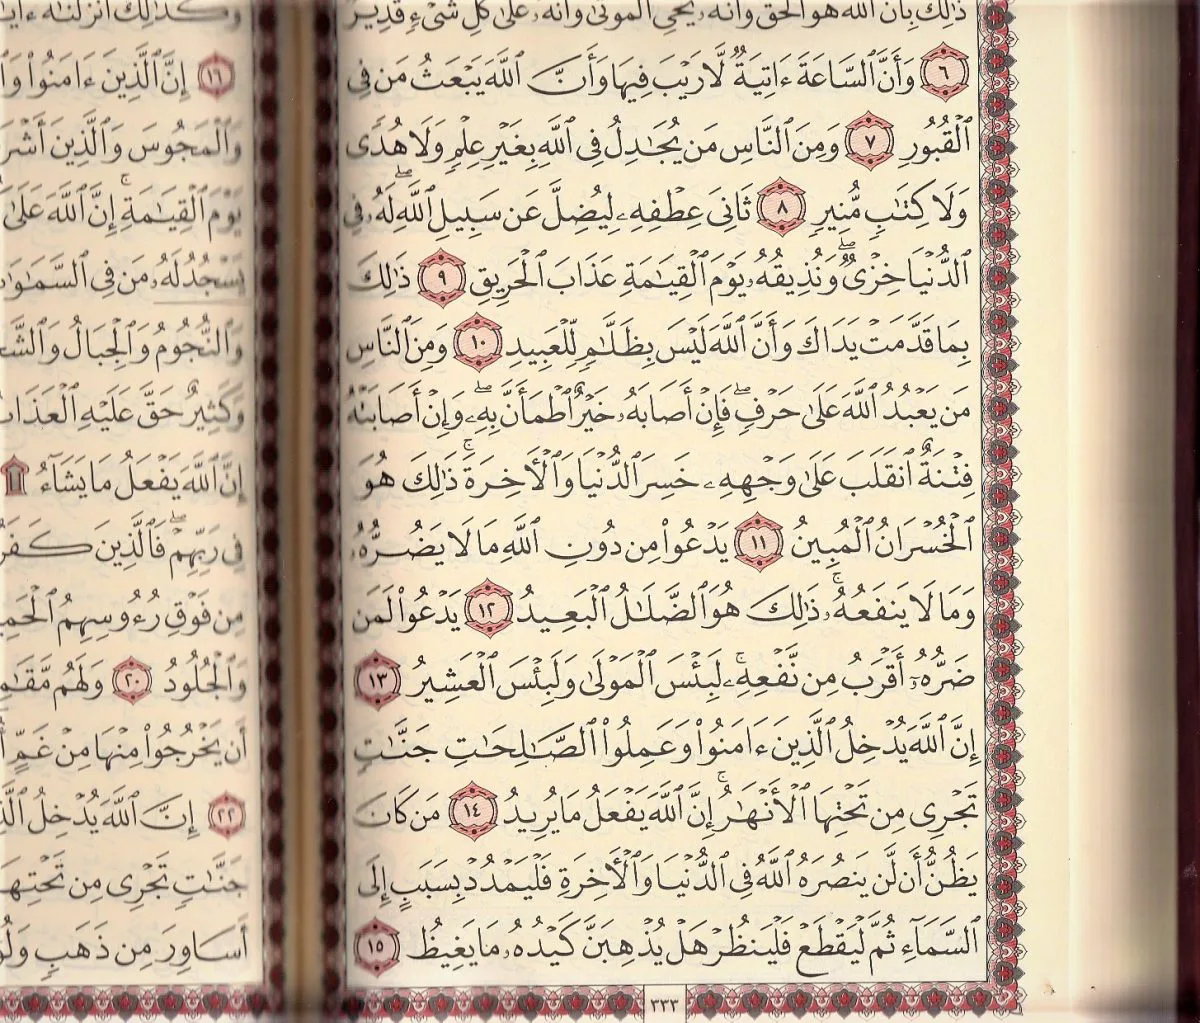 ذَٰلِكَ بِأَنَّ ٱللَّهَ هُوَ ٱلْحَقُّ وَأَنَّهُۥ يُحْىِ ٱلْمَوْتَىٰ وَأَنَّهُۥ عَلَىٰ كُلِّ شَىْءٍ قَدِيرٌ
٦ وَأَنَّ ٱلسَّاعَةَ ءَاتِيَةٌ لَّا رَيْبَ فِيهَا وَأَنَّ ٱللَّهَ يَبْعَثُ مَن فِى
ٱلْقُبُورِ ٧ وَمِنَ ٱلنَّاسِ مَن يُجَٰدِلُ فِى ٱللَّهِ بِغَيْرِ عِلْمٍ وَلَا هُدًى
وَلَا كِتَٰبٍ مُّنِيرٍ ٨ ثَانِىَ عِطْفِهِۦ لِيُضِلَّ عَن سَبِيلِ ٱللَّهِ ۖ لَهُۥ فِى
ٱلدُّنْيَا خِزْىٌ ۖ وَنُذِيقُهُۥ يَوْمَ ٱلْقِيَٰمَةِ عَذَابَ ٱلْحَرِيقِ ٩ ذَٰلِكَ
بِمَا قَدَّمَتْ يَدَاكَ وَأَنَّ ٱللَّهَ لَيْسَ بِظَلَّٰمٍ لِّلْعَبِيدِ ١٠ وَمِنَ ٱلنَّاسِ
مَن يَعْبُدُ ٱللَّهَ عَلَىٰ حَرْفٍ ۖ فَإِنْ أَصَابَهُۥ خَيْرٌ ٱطْمَأَنَّ بِهِۦ ۖ وَإِنْ أَصَابَتْهُ
فِتْنَةٌ ٱنقَلَبَ عَلَىٰ وَجْهِهِۦ خَسِرَ ٱلدُّنْيَا وَٱلْءَاخِرَةَ ۚ ذَٰلِكَ هُوَ
ٱلْخُسْرَانُ ٱلْمُبِينُ ١١ يَدْعُوا۟ مِن دُونِ ٱللَّهِ مَا لَا يَضُرُّهُۥ
وَمَا لَا يَنفَعُهُۥ ۚ ذَٰلِكَ هُوَ ٱلضَّلَٰلُ ٱلْبَعِيدُ ١٢ يَدْعُوا۟ لَمَن
ضَرُّهُۥٓ أَقْرَبُ مِن نَّفْعِهِۦ ۚ لَبِئْسَ ٱلْمَوْلَىٰ وَلَبِئْسَ ٱلْعَشِيرُ ١٣
إِنَّ ٱللَّهَ يُدْخِلُ ٱلَّذِينَ ءَامَنُوا۟ وَعَمِلُوا۟ ٱلصَّٰلِحَٰتِ جَنَّٰتٍ
تَجْرِى مِن تَحْتِهَا ٱلْأَنْهَٰرُ ۚ إِنَّ ٱللَّهَ يَفْعَلُ مَا يُرِيدُ ١٤ مَن كَانَ
يَظُنُّ أَن لَّن يَنصُرَهُ ٱللَّهُ فِى ٱلدُّنْيَا وَٱلْءَاخِرَةِ فَلْيَمْدُدْ بِسَبَبٍ إِلَى
ٱلسَّمَآءِ ثُمَّ لْيَقْطَعْ فَلْيَنظُرْ هَلْ يُذْهِبَنَّ كَيْدُهُۥ مَا يَغِيظُ ١٥
٣٣٣
وَكَذَٰلِكَ أَنزَلْنَٰهُ
١٦ إِنَّ ٱلَّذِينَ ءَامَنُوا۟
وَٱلْمَجُوسَ وَٱلَّذِينَ
يَوْمَ ٱلْقِيَٰمَةِ ۚ إِنَّ ٱللَّهَ عَلَىٰ
يَسْجُدُ لَهُۥ مَن فِى
وَٱلنُّجُومُ وَٱلْجِبَالُ
وَكَثِيرٌ حَقَّ عَلَيْهِ ٱلْعَذَابُ
إِنَّ ٱللَّهَ يَفْعَلُ مَا يَشَآءُ ۩
فِى رَبِّهِمْ ۖ فَٱلَّذِينَ
مِن فَوْقِ رُءُوسِهِمُ
وَٱلْجُلُودُ ٢٠ وَلَهُم
أَن يَخْرُجُوا۟ مِنْهَا مِنْ غَمٍّ
٢٢ إِنَّ ٱللَّهَ يُدْخِلُ
جَنَّٰتٍ تَجْرِى مِن تَحْتِهَا
أَسَاوِرَ مِن ذَهَبٍ